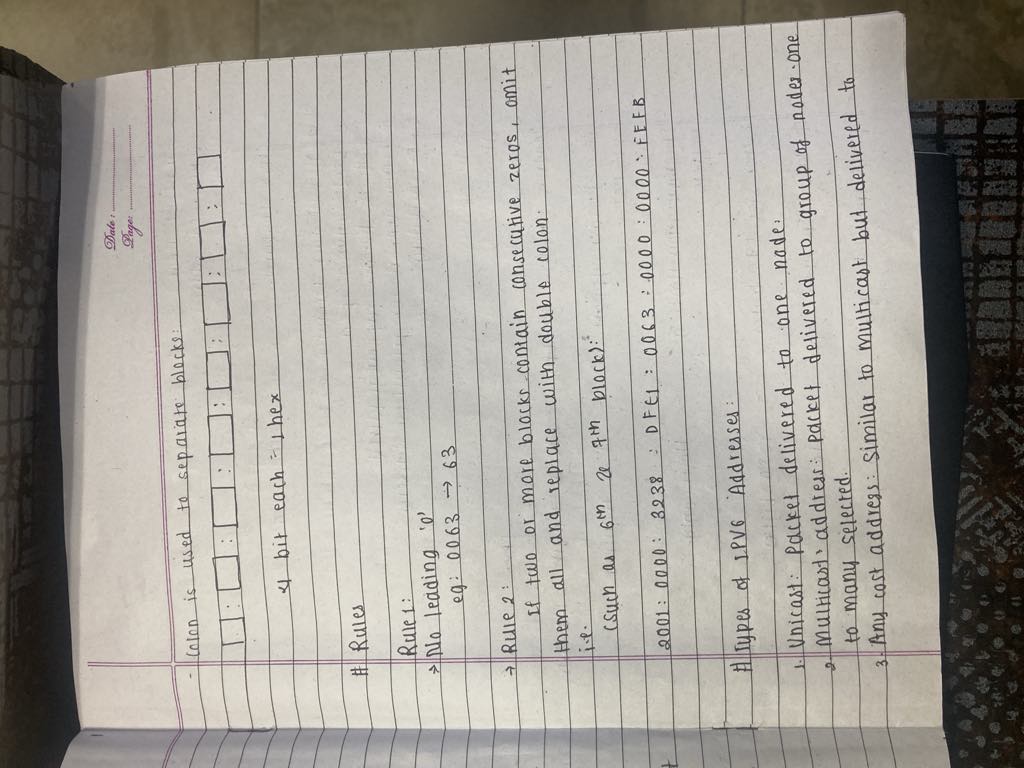 Date:
Page:
- Colon is used to separate blocks:
: : : : : : :
4 bit each = 1 hex
# Rules
Rule 1:
→ No leading '0'
eg: 0063 → 63
→ Rule 2:
If two or more blocks contain consecutive zeros, omit
them all and replace with double colon.
i.e.
(such as 6th & 7th block):
2001 : 0000 : 3238 : DFE1 : 0063 : 0000 : 0000 : FEFB
# Types of IPV6 Addresses:
1. Unicast: Packet delivered to one node.
2. Multicast address: packet delivered to group of nodes. one
to many selected.
3. Any cost address: similar to multicast but delivered to